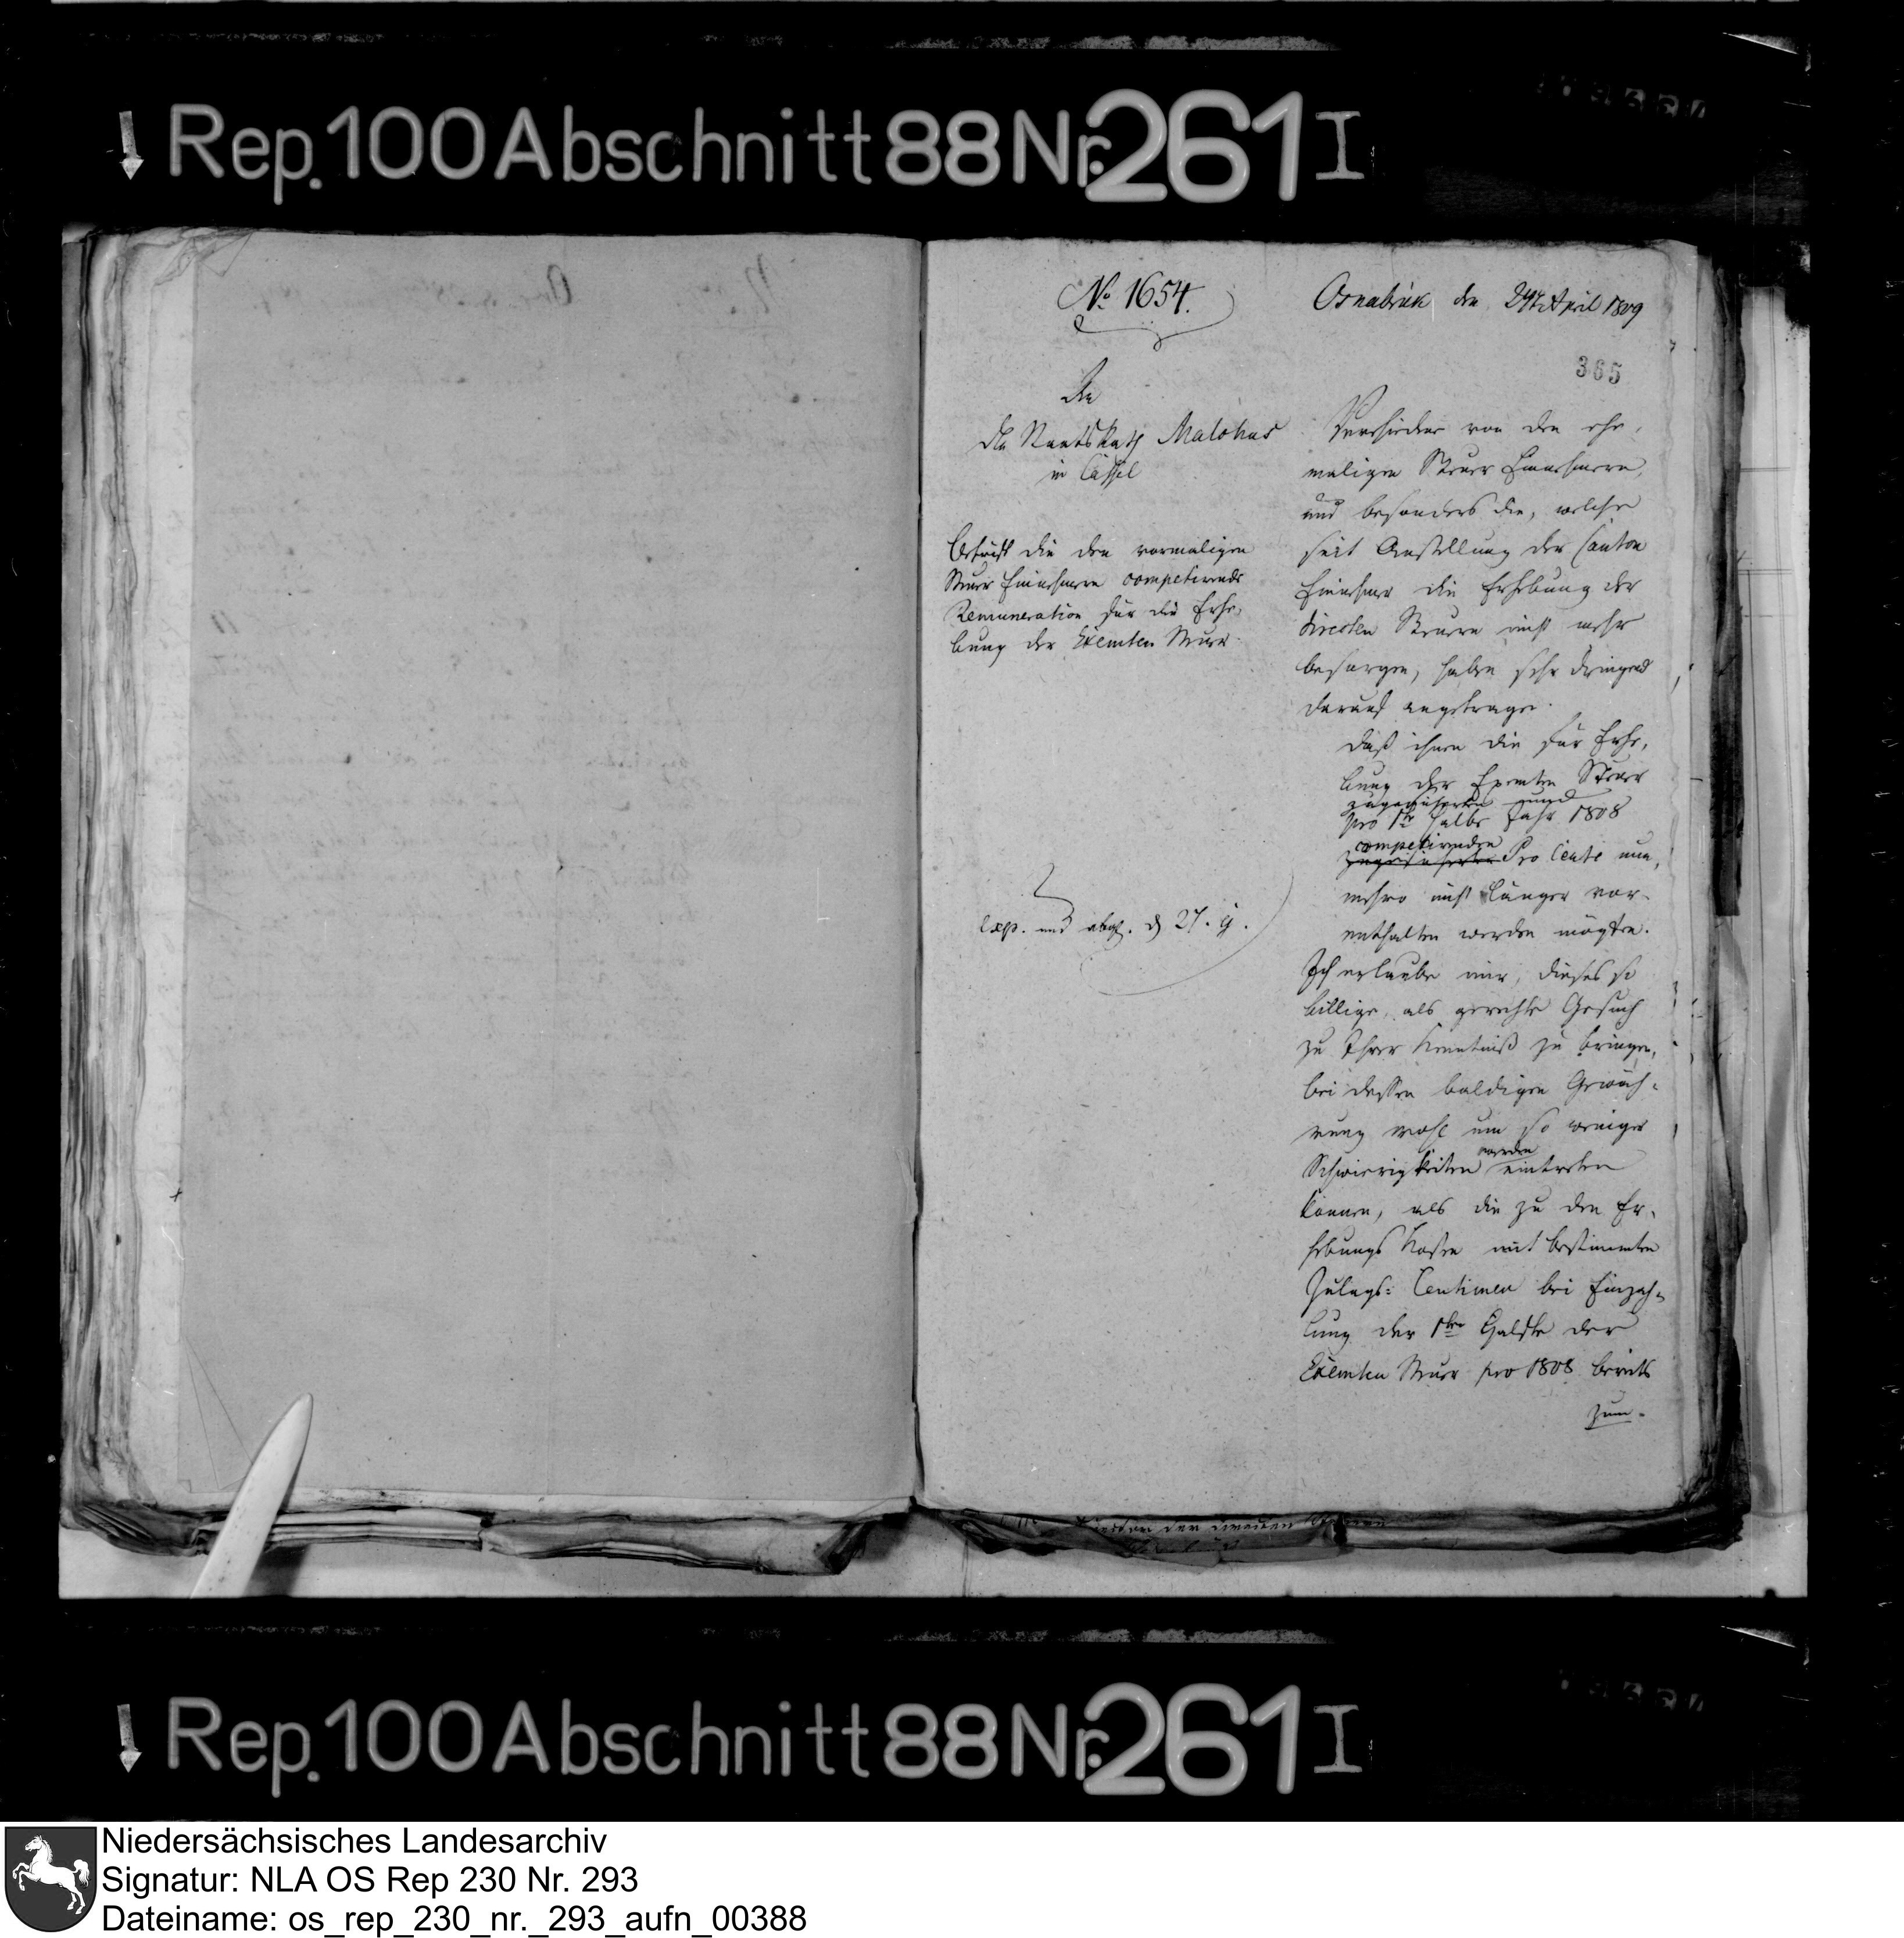 Rep. 100 Abschnitt 88 Nr. 261 I
No 1654.
Osnabrück den 24t April 1809
365
An
den StaatsRath Malchus
in Cassel
Betrifft die den vormaligen
Steuer Einnehmern competirende
Remuneration für die Erhe-
bung der Exemten Steuer.
exp. und abg. d 27. ej.
Verschiedene von den ehe-
maligen Steuer Einnehmern,
und besonders die, welche
seit Anstellung der Canton
Einnehmer die Erhebung der
directen Steuern nicht mehr
besorgen, haben sehr dringend
darauf angetragen.
daß ihnen die für Erhe-
bung der Exemten Steuer
zugesicherten und
pro 1te halbe Jahr 1808
competirenden
zugesicherten Pro Cente nun-
mehro nicht länger vor-
enthalten werden mögten.
Ich erlaube mir, dieses so
billige, als gerechte Gesuch
zu Ihrer Kenntniß zu bringen,
bei dessen baldigen Gewäh-
rung wohl um so weniger
werden
Schwierigkeiten eintreten
können, als die zu den Er-
hebungs Kosten mit bestimmten
Zulags- Centimen bei Einzah-
lung der 1ten Hälfte der
Exemten Steuer pro 1808 bereits
zum-
Rep. 100 Abschnitt 88 Nr. 261 I
Niedersächsisches Landesarchiv
Signatur: NLA OS Rep 230 Nr. 293
Dateiname: os_rep_230_nr._293_aufn_00388